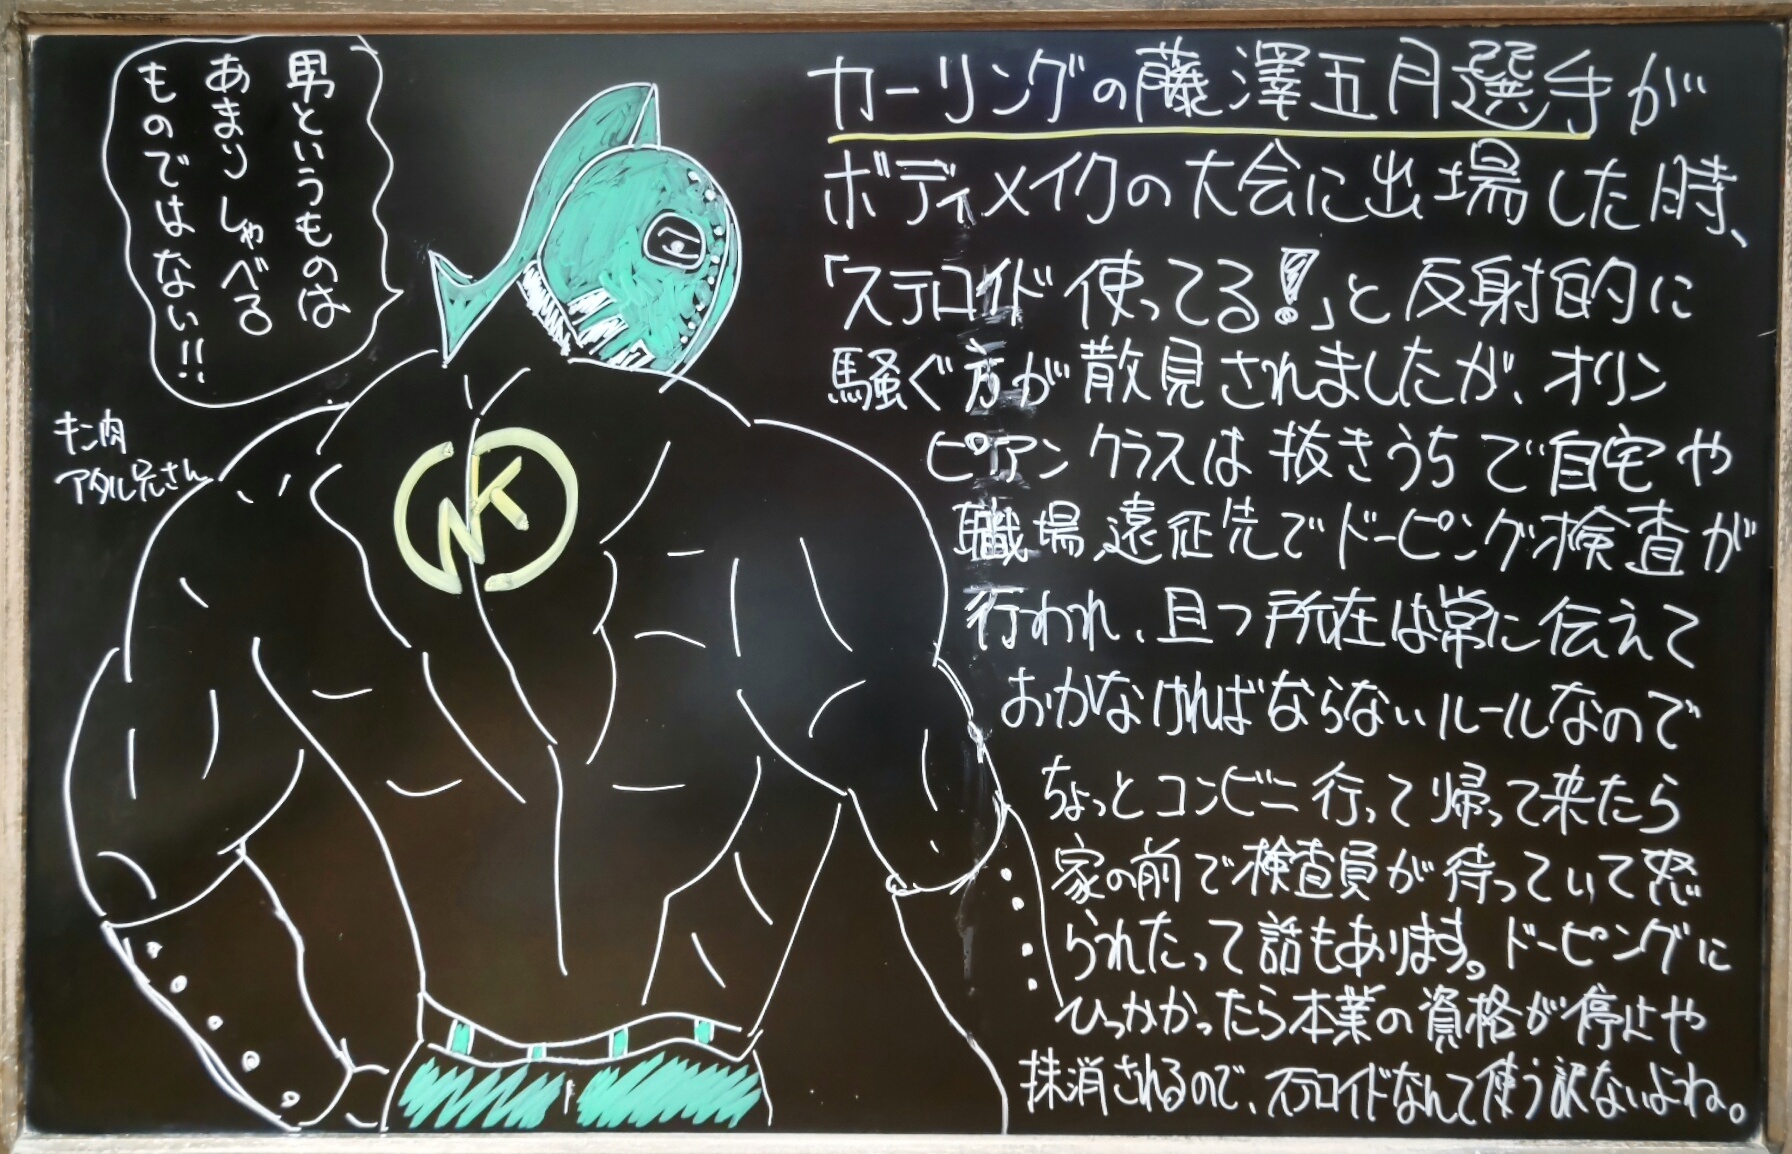 カーリングの藤澤五月選手が
ボディメイクの大会に出場した時、
「ステロイド使ってる!」と反射的に
騒ぐ方が散見されましたが、オリン
ピアンクラスは抜きうちで自宅や
職場、遠征先でドーピング検査が
行われ、且つ所在は常に伝えて
おかなければならないルールなので
ちょっとコンビニ行って帰って来たら
家の前で検査員が待っていて怒
られたって話もあります。ドーピングに
ひっかかったら本業の資格が停止や
抹消されるので、ステロイドなんて使う訳ないよね。
男というものは
あまりしゃべる
ものではない!!
キン肉
アタル兄さん
MK